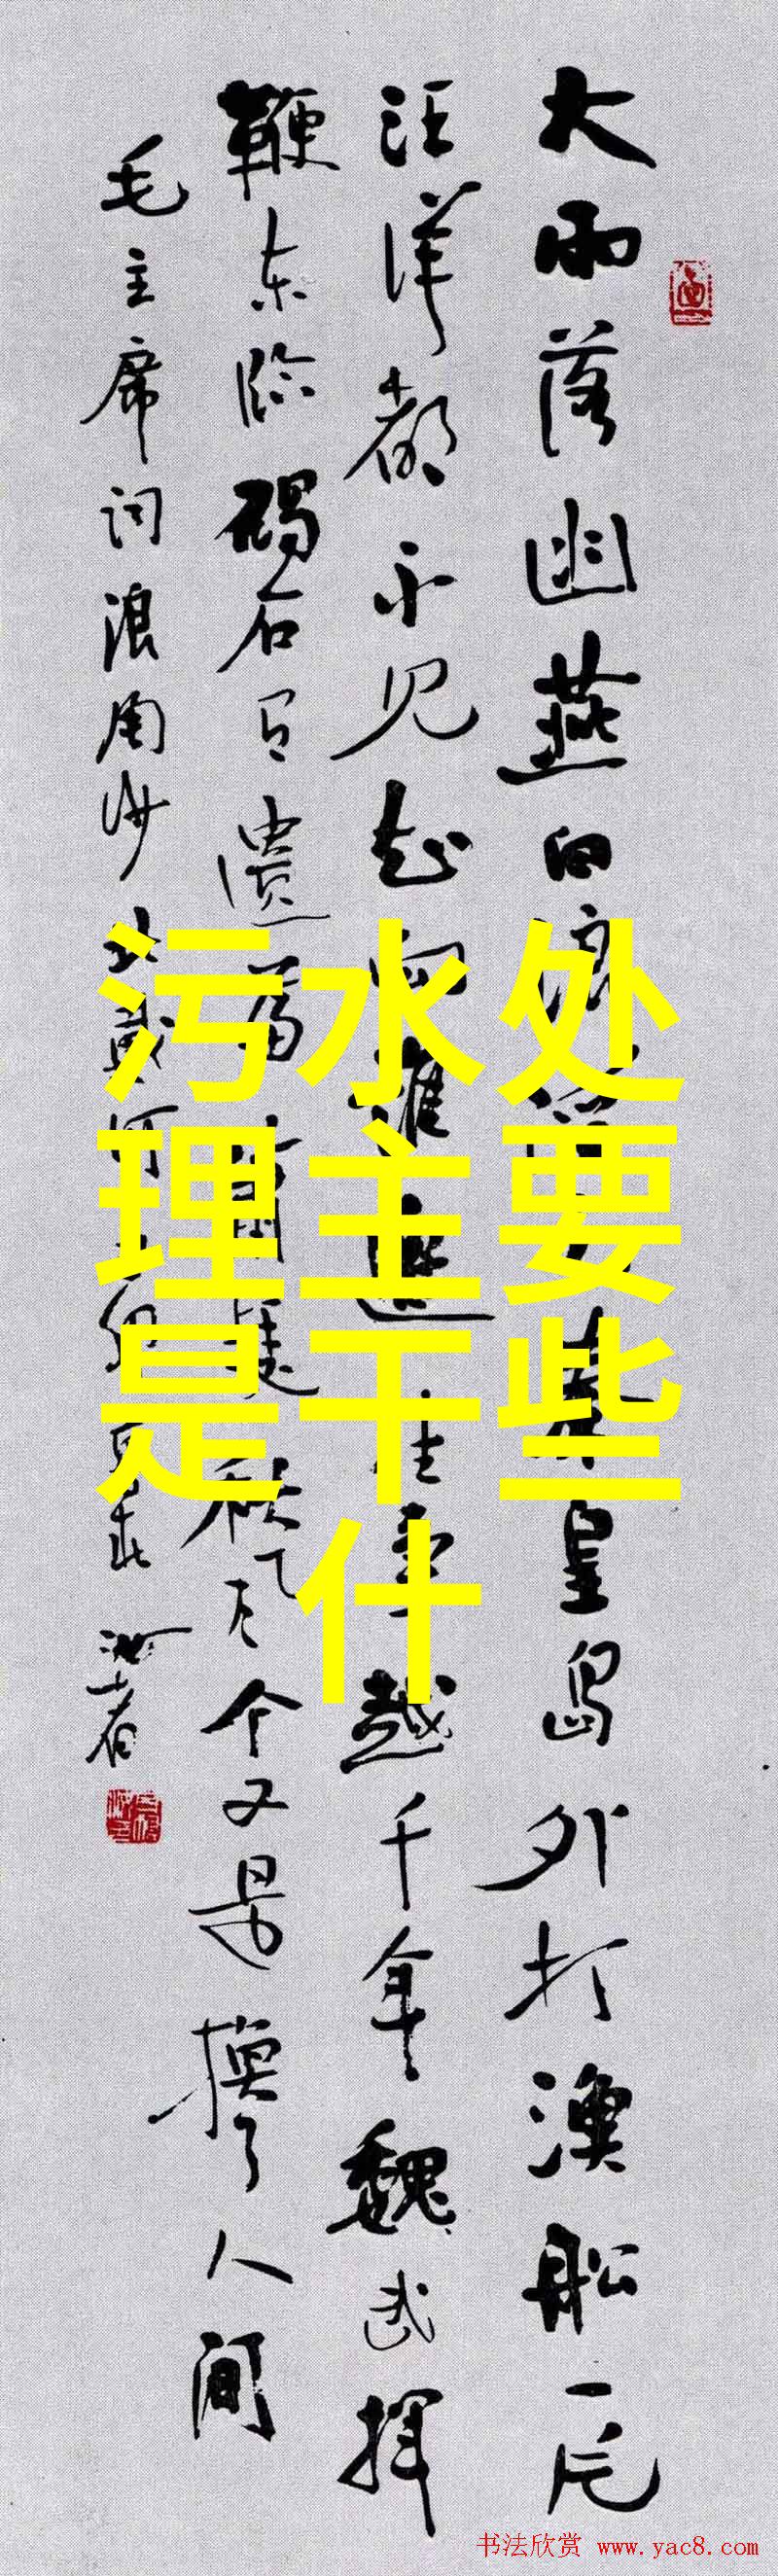 大雨落幽燕白浪滔天秦皇岛外打漁船一片
汪洋都不见知向谁边往事越千年魏武揮
鞭东临碣石有遗篇萧瑟秋风今又是換了人間
毛主席词浪淘沙北戴河
污水处
理主要
是干些
什
书法欣赏 www.yac8.com